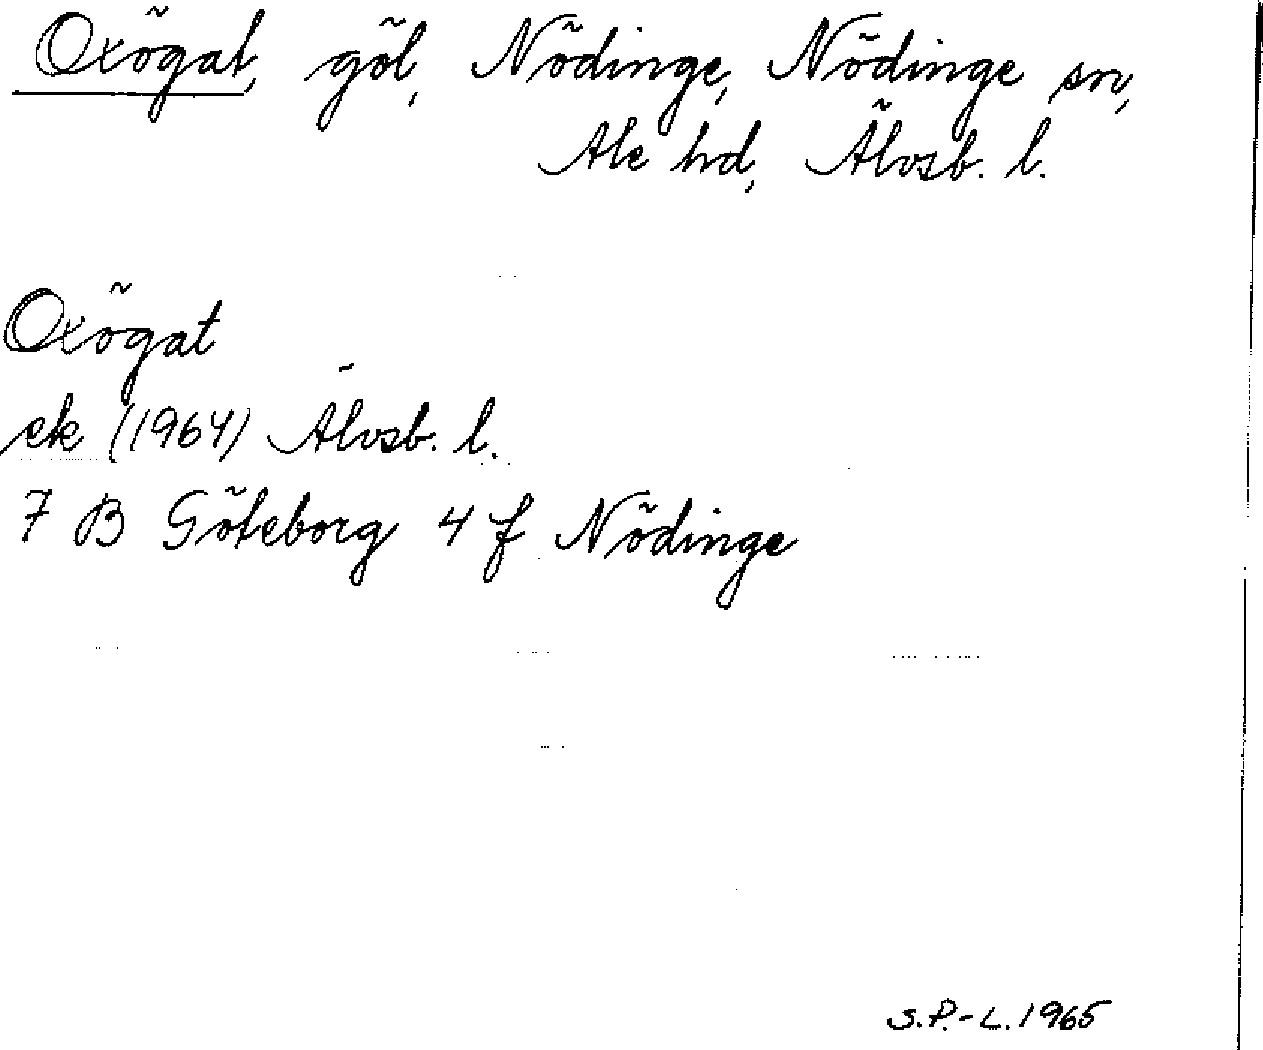 Oxögat, göl, Nödinge, Nödinge sn,
Ale hd, Älvsb. l.
Oxögat
ek (1964) Älvsb. l.
7 B Göteborg 4 f Nödinge
S.P.-L. 1965